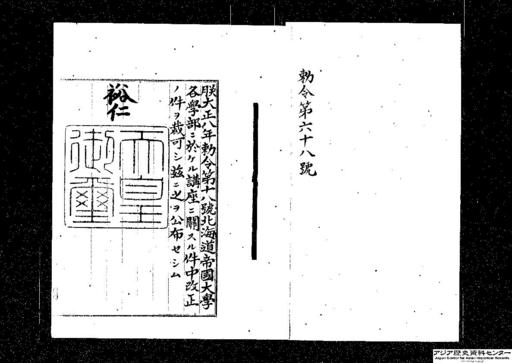 勅令第六十八號
朕大正八年勅令第十八號北海道帝國大學
各學部ニ於ケル講座ニ關スル件中改正
ノ件ヲ裁可シ玆ニ之ヲ公布セシム
裕仁
天皇
御璽
アジア歴史資料センター
Japan Center for Asian Historical Records